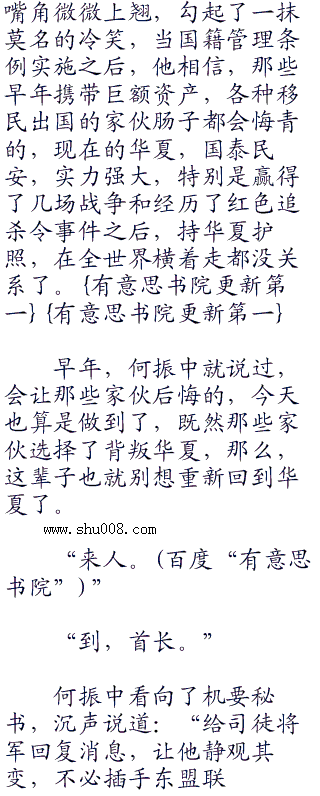 嘴角微微上翘，勾起了一抹
莫名的冷笑，当国籍管理条
例实施之后，他相信，那些
早年携带巨额资产，各种移
民出国的家伙肠子都会悔青
的，现在的华夏，国泰民
安，实力强大，特别是赢得
了几场战争和经历了红色追
杀令事件之后，持华夏护
照，在全世界横着走都没关
系了。{有意思书院更新第
一}{有意思书院更新第一}
早年，何振中就说过，
会让那些家伙后悔的，今天
也算是做到了，既然那些家
伙选择了背叛华夏，那么，
这辈子也就别想重新回到华
夏了。
www.shu008.com
“来人。(百度“有意思
书院”)”
“到，首长。”
何振中看向了机要秘
书，沉声说道：“给司徒将
军回复消息，让他静观其
变，不必插手东盟联